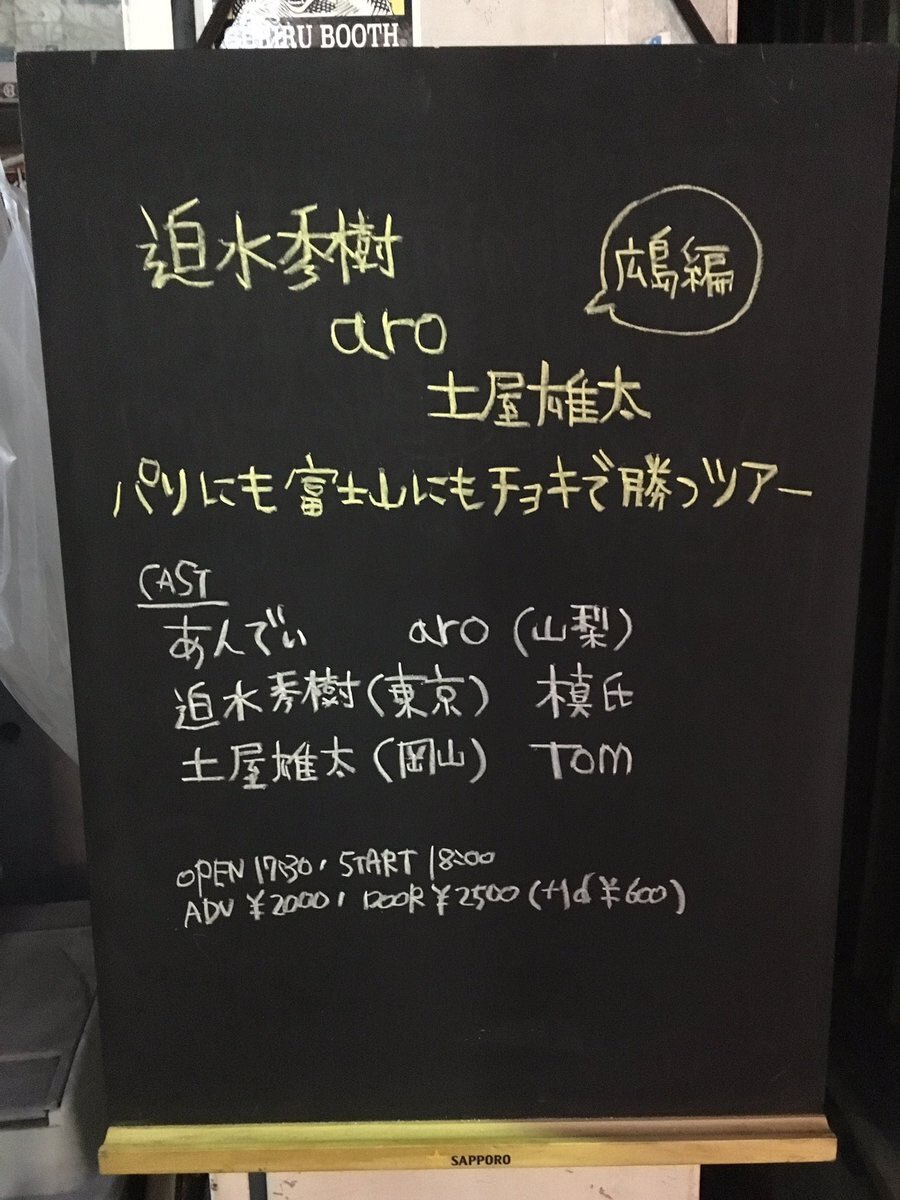 BIRU BOOTH
迫水秀樹
広島編
aro
土屋雄太
パリにも富士山にもチョキで勝つツアー
CAST
あんでぃ aro (山梨)
迫水秀樹 (東京) 槙氏
土屋雄太 (岡山) TOM
OPEN 17:30, START 18:00
ADV ¥2000, DOOR ¥2500 (+1d ¥600)
SAPPORO